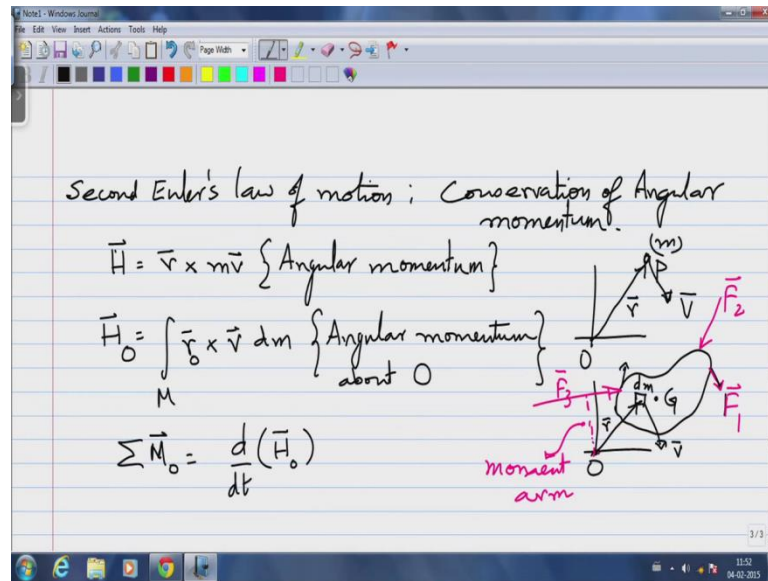 Note1 - Windows Journal
File Edit View Insert Actions Tools Help
Page Width
Second Euler's law of motion ; Conservation of Angular
momentum.
H⃗ = r̅ × mv̅ { Angular momentum }
(m)
P
r̅
V̅
O
F̅₂
H⃗_O = ∫_M r̅_o × v⃗ dm { Angular momentum
about O }
F̅₃
dm
G
F⃗₁
r̅
v̅
O
moment
arm
Σ M⃗_o = d/dt (H̅_o)
3/3
11:52
04-02-2015